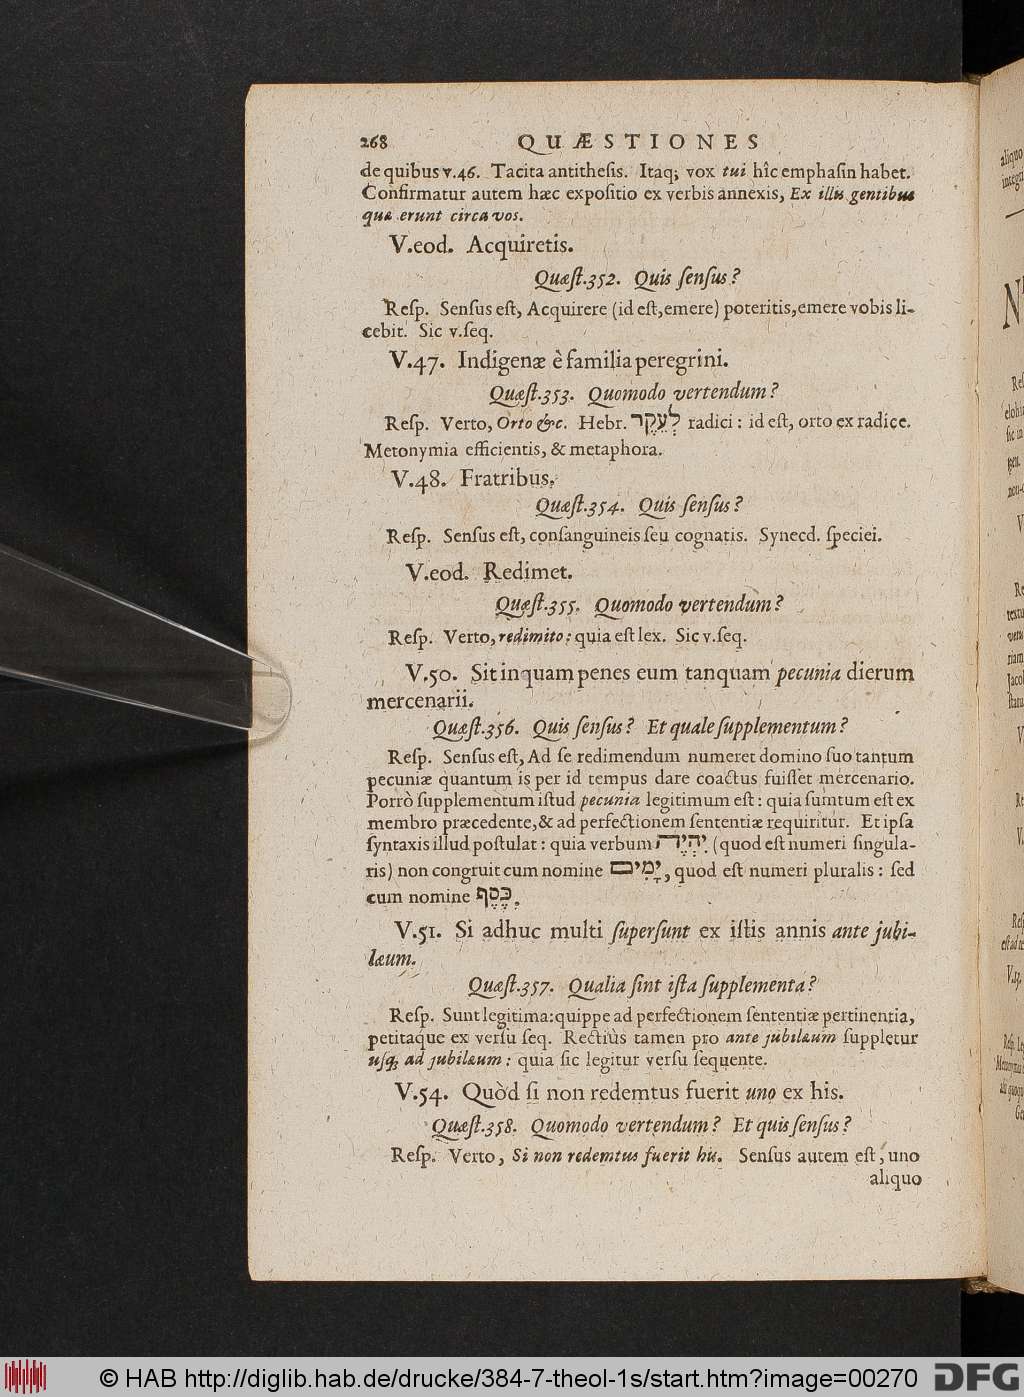 268 QUÆSTIONES
de quibus v.46. Tacita antithesis. Itaq; vox tui hîc emphasin habet.
Confirmatur autem hæc expositio ex verbis annexis, Ex illis gentibus
quæ erunt circa vos.
V.eod. Acquiretis.
Quæſt.352. Quis ſenſus?
Reſp. Senſus eſt, Acquirere (id eſt, emere) poteritis, emere vobis li-
cebit. Sic v.ſeq.
V.47. Indigenæ è familia peregrini.
Quæſt.353. Quomodo vertendum?
Reſp. Verto, Orto &c. Hebr. לְעֵקֶר radici: id eſt, orto ex radice.
Metonymia efficientis, & metaphora.
V.48. Fratribus.
Quæſt.354. Quis ſenſus?
Reſp. Senſus eſt, conſanguineis ſeu cognatis. Synecd. ſpeciei.
V.eod. Redimet.
Quæſt.355. Quomodo vertendum?
Reſp. Verto, redimito: quia eſt lex. Sic v.ſeq.
V.50. Sit inquam penes eum tanquam pecunia dierum
mercenarii.
Quæſt.356. Quis ſenſus? Et quale ſupplementum?
Reſp. Senſus eſt, Ad ſe redimendum numeret domino ſuo tantum
pecuniæ quantum is per id tempus dare coactus fuiſſet mercenario.
Porrò ſupplementum iſtud pecunia legitimum eſt: quia ſumtum eſt ex
membro præcedente, & ad perfectionem ſententiæ requiritur. Et ipſa
ſyntaxis illud poſtulat: quia verbum יִהְיֶה (quod eſt numeri ſingula-
ris) non congruit cum nomine יָמִים, quod eſt numeri pluralis: ſed
cum nomine כֶּסֶף.
V.51. Si adhuc multi ſuperſunt ex iſtis annis ante jubi-
læum.
Quæſt.357. Qualia ſint iſta ſupplementa?
Reſp. Sunt legitima: quippe ad perfectionem ſententiæ pertinentia,
petitaque ex verſu ſeq. Rectiùs tamen pro ante jubilæum ſuppletur
uſq; ad jubilæum: quia ſic legitur verſu ſequente.
V.54. Quòd ſi non redemtus fuerit uno ex his.
Quæſt.358. Quomodo vertendum? Et quis ſenſus?
Reſp. Verto, Si non redemtus fuerit his. Senſus autem eſt, uno
aliquo
© HAB http://diglib.hab.de/drucke/384-7-theol-1s/start.htm?image=00270
DFG